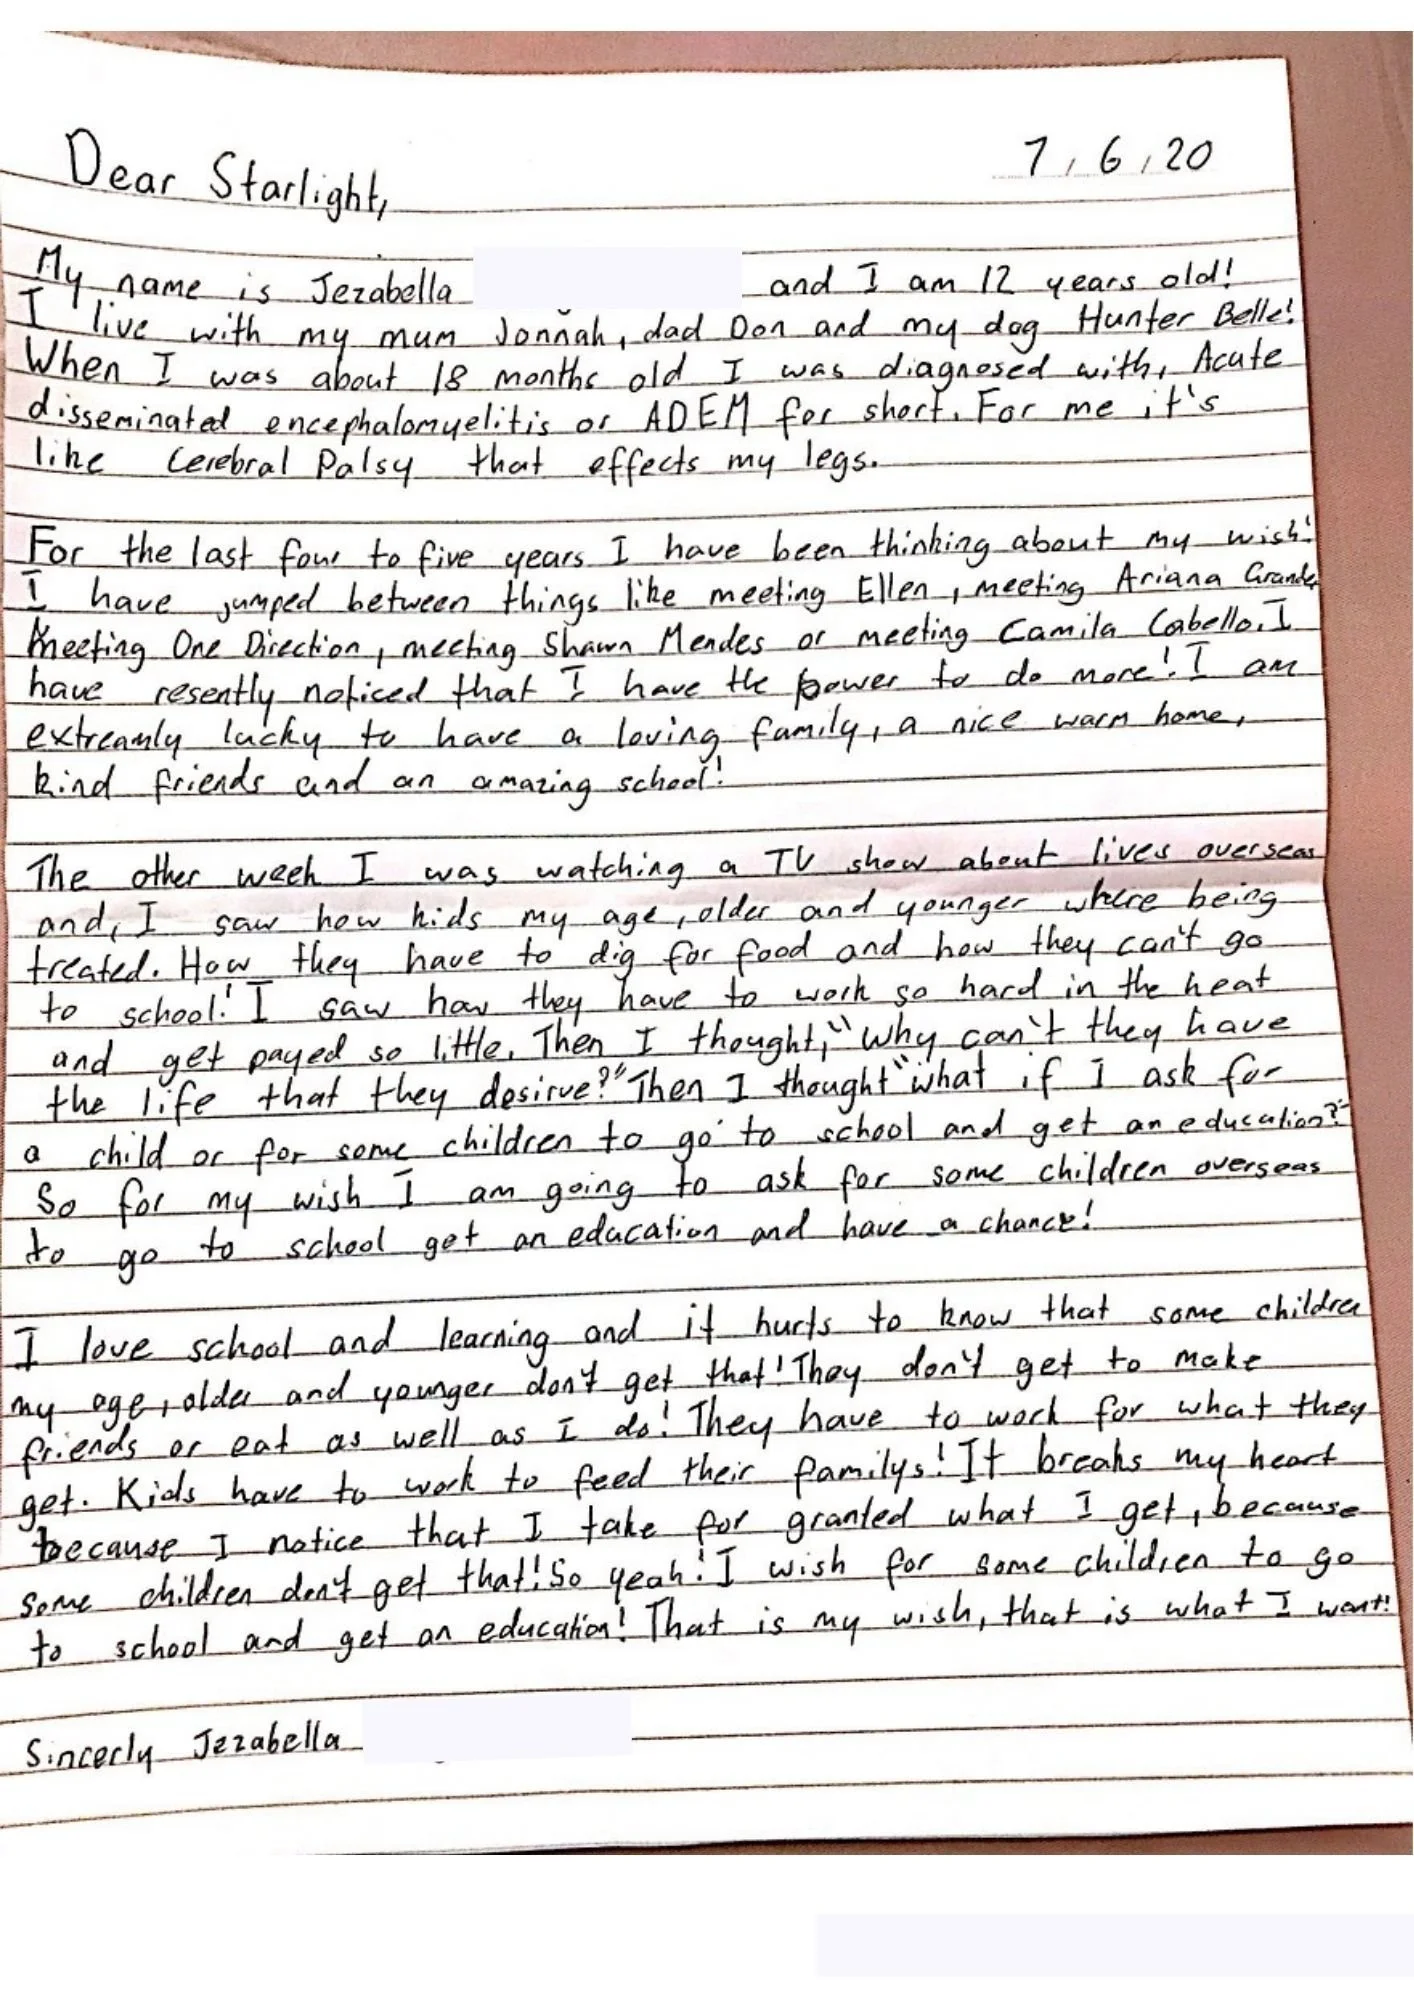 7/6/20
Dear Starlight,
My name is Jezabella and I am 12 years old!
I live with my mum Jonnah, dad Don and my dog Hunter Belle!
When I was about 18 months old I was diagnosed with, Acute
disseminated encephalomyelitis or ADEM for short. For me it's
like Cerebral Palsy that effects my legs.
For the last four to five years I have been thinking about my wish!
I have jumped between things like meeting Ellen, meeting Ariana Grande,
meeting One Direction, meeting Shawn Mendes or meeting Camila Cabello. I
have resently noticed that I have the power to do more! I am
extreamly lucky to have a loving family, a nice warm home,
kind friends and an amazing school!
The other week I was watching a TV show about lives overseas
and, I saw how kids my age, older and younger where being
treated. How they have to dig for food and how they can't go
to school! I saw how they have to work so hard in the heat
and get payed so little. Then I thought, "Why can't they have
the life that they desirve?" Then I thought "what if I ask for
a child or for some children to go to school and get an education?"
So for my wish I am going to ask for some children overseas
to go to school get an education and have a chance!
I love school and learning and it hurts to know that some children
my age, older and younger don't get that! They don't get to make
friends or eat as well as I do! They have to work for what they
get. Kids have to work to feed their familys! It breaks my heart
because I notice that I take for granted what I get, because
some children don't get that! So yeah! I wish for some children to go
to school and get an education! That is my wish, that is what I want!
Sincerly Jezabella